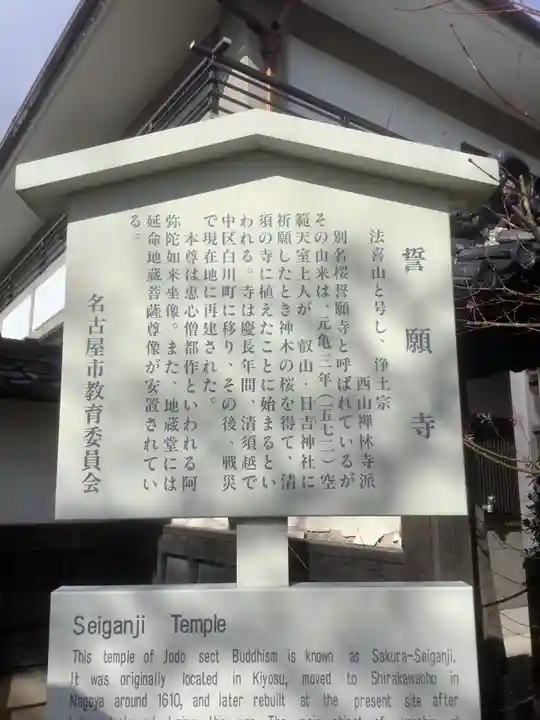 誓願寺
法喜山と号し、浄土宗
西山禅林寺派
別名桜誓願寺と呼ばれているが
その由来は、元亀三年(一五七二)空
範天室上人が 叡山・日吉神社に
祈願したとき神木の桜を得て、清
須の寺に植えたことに始まるとい
われる。寺は慶長年間、清須越で
中区白川町に移り、その後、戦災
で現在地に再建された。
本尊は恵心僧都作といわれる阿
弥陀如来坐像。また、地蔵堂には
延命地蔵菩薩尊像が安置されてい
る。
名古屋市教育委員会
Seiganji Temple
This temple of Jodo sect Buddhism is known as Sakura-Seiganji.
It was originally located in Kiyosu, moved to Shirakawacho in
Nagoya around 1610, and later rebuilt at the present site after